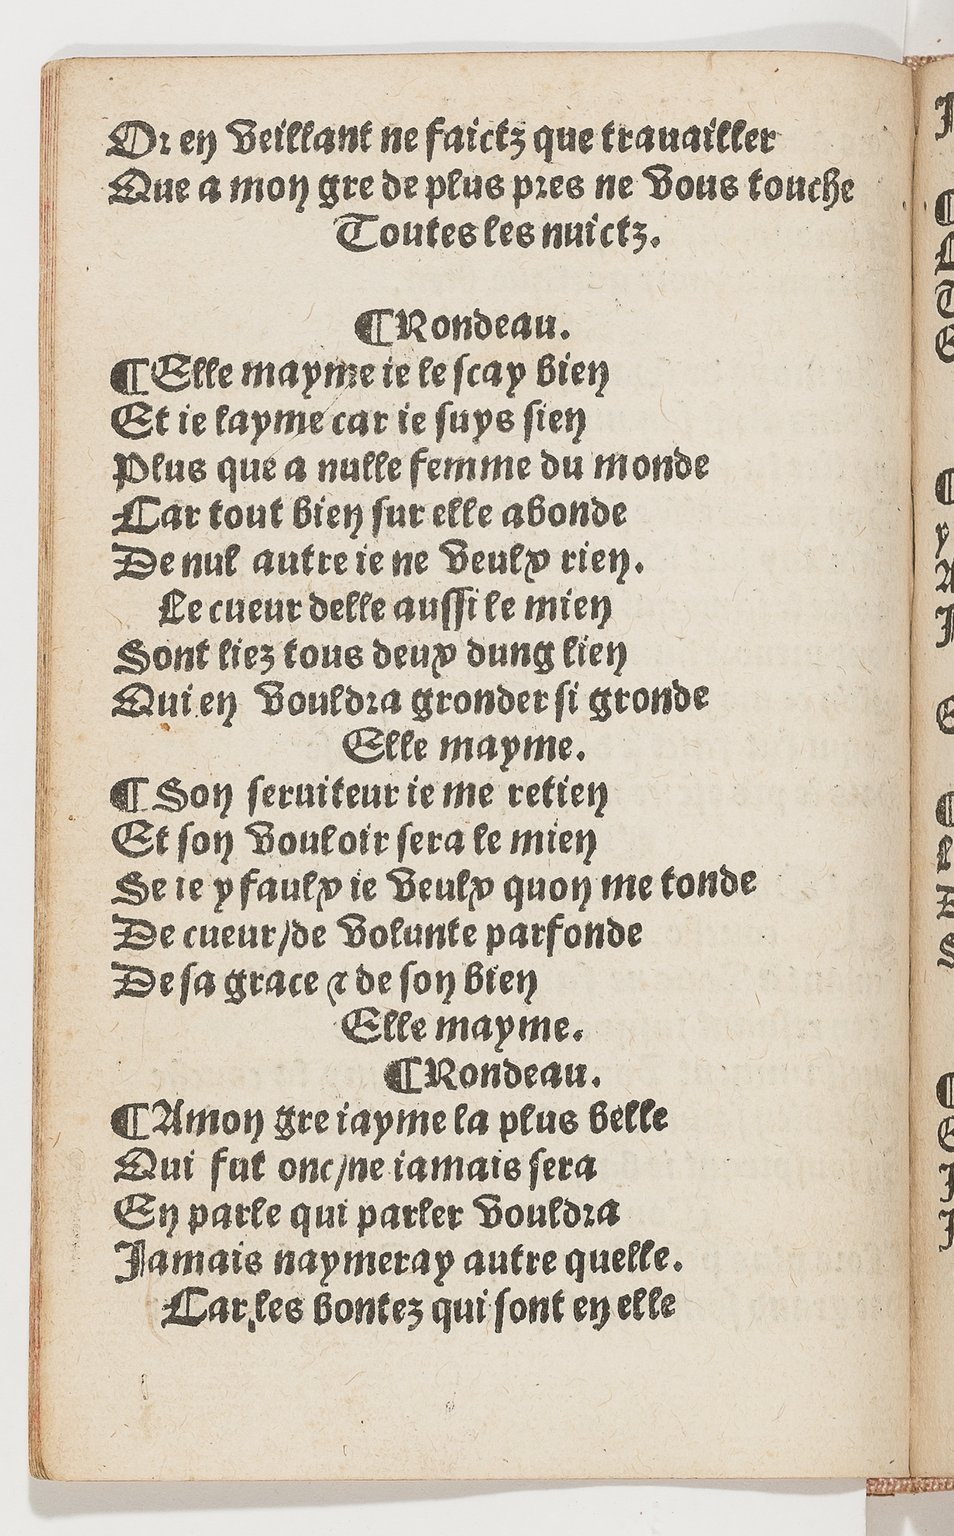 Or en veillant ne faictz que trauailler
Que a mon gre de plus pres ne vous touche
Toutes les nuictz.
¶Rondeau.
¶Elle mayme ie le scay bien
Et ie layme car ie suys sien
Plus que a nulle femme du monde
Car tout bien sur elle abonde
De nul autre ie ne veulx rien.
Le cueur delle aussi le mien
Sont liez tous deux dung lien
Qui en vouldra gronder si gronde
Elle mayme.
¶Son seruiteur ie me retien
Et son vouloir sera le mien
Se ie y faulx ie veulx quon me tonde
De cueur/de volunte parfonde
De sa grace ⁊ de son bien
Elle mayme.
¶Rondeau.
¶Amon gre iayme la plus belle
Qui fut onc/ne iamais sera
En parle qui parler vouldra
Jamais naymeray autre quelle.
Car les bontez qui sont en elle